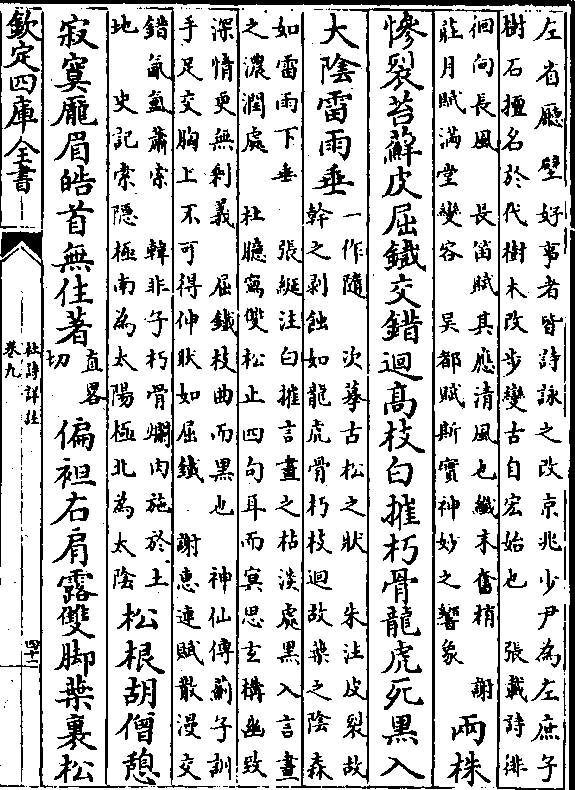 左省㕔壁好事者皆詩詠之改京兆少尹為左庶子
樹石擅名於代樹木改步變古自宏始也　張載詩徘
徊向長風　長笛賦其應清風也纎末奮梢　謝
莊月賦滿堂變容　吳都賦斯實神妙之響象
兩株
慘裂苔蘚皮屈鐵交錯迴高枝白摧朽骨龍虎死黑入
大陰雷雨垂
一作隨　次摹古松之狀　朱注皮裂故
幹之剥蝕如龍虎骨朽枝迴故葉之陰森
如雷雨下垂　張綖注白摧言畫之枯淡處黑入言畫
之濃潤處　杜臆寫雙松止四句耳而冥思玄構幽致
深情更無剩義　屈鐵枝曲而黑也　神仙傳薊子訓
手足交胸上不可得伸狀如屈鐵　謝惠連賦散漫交
錯氛氲蕭索　韓非子朽骨爛肉施於土
地　史記索隱極南為太陽極北為太陰
松根胡僧憩
寂寞龎眉皓首無住著
直畧
切
偏袒右肩露雙脚葉裏松
欽定四庫全書
杜詩詳註
卷九
四十二